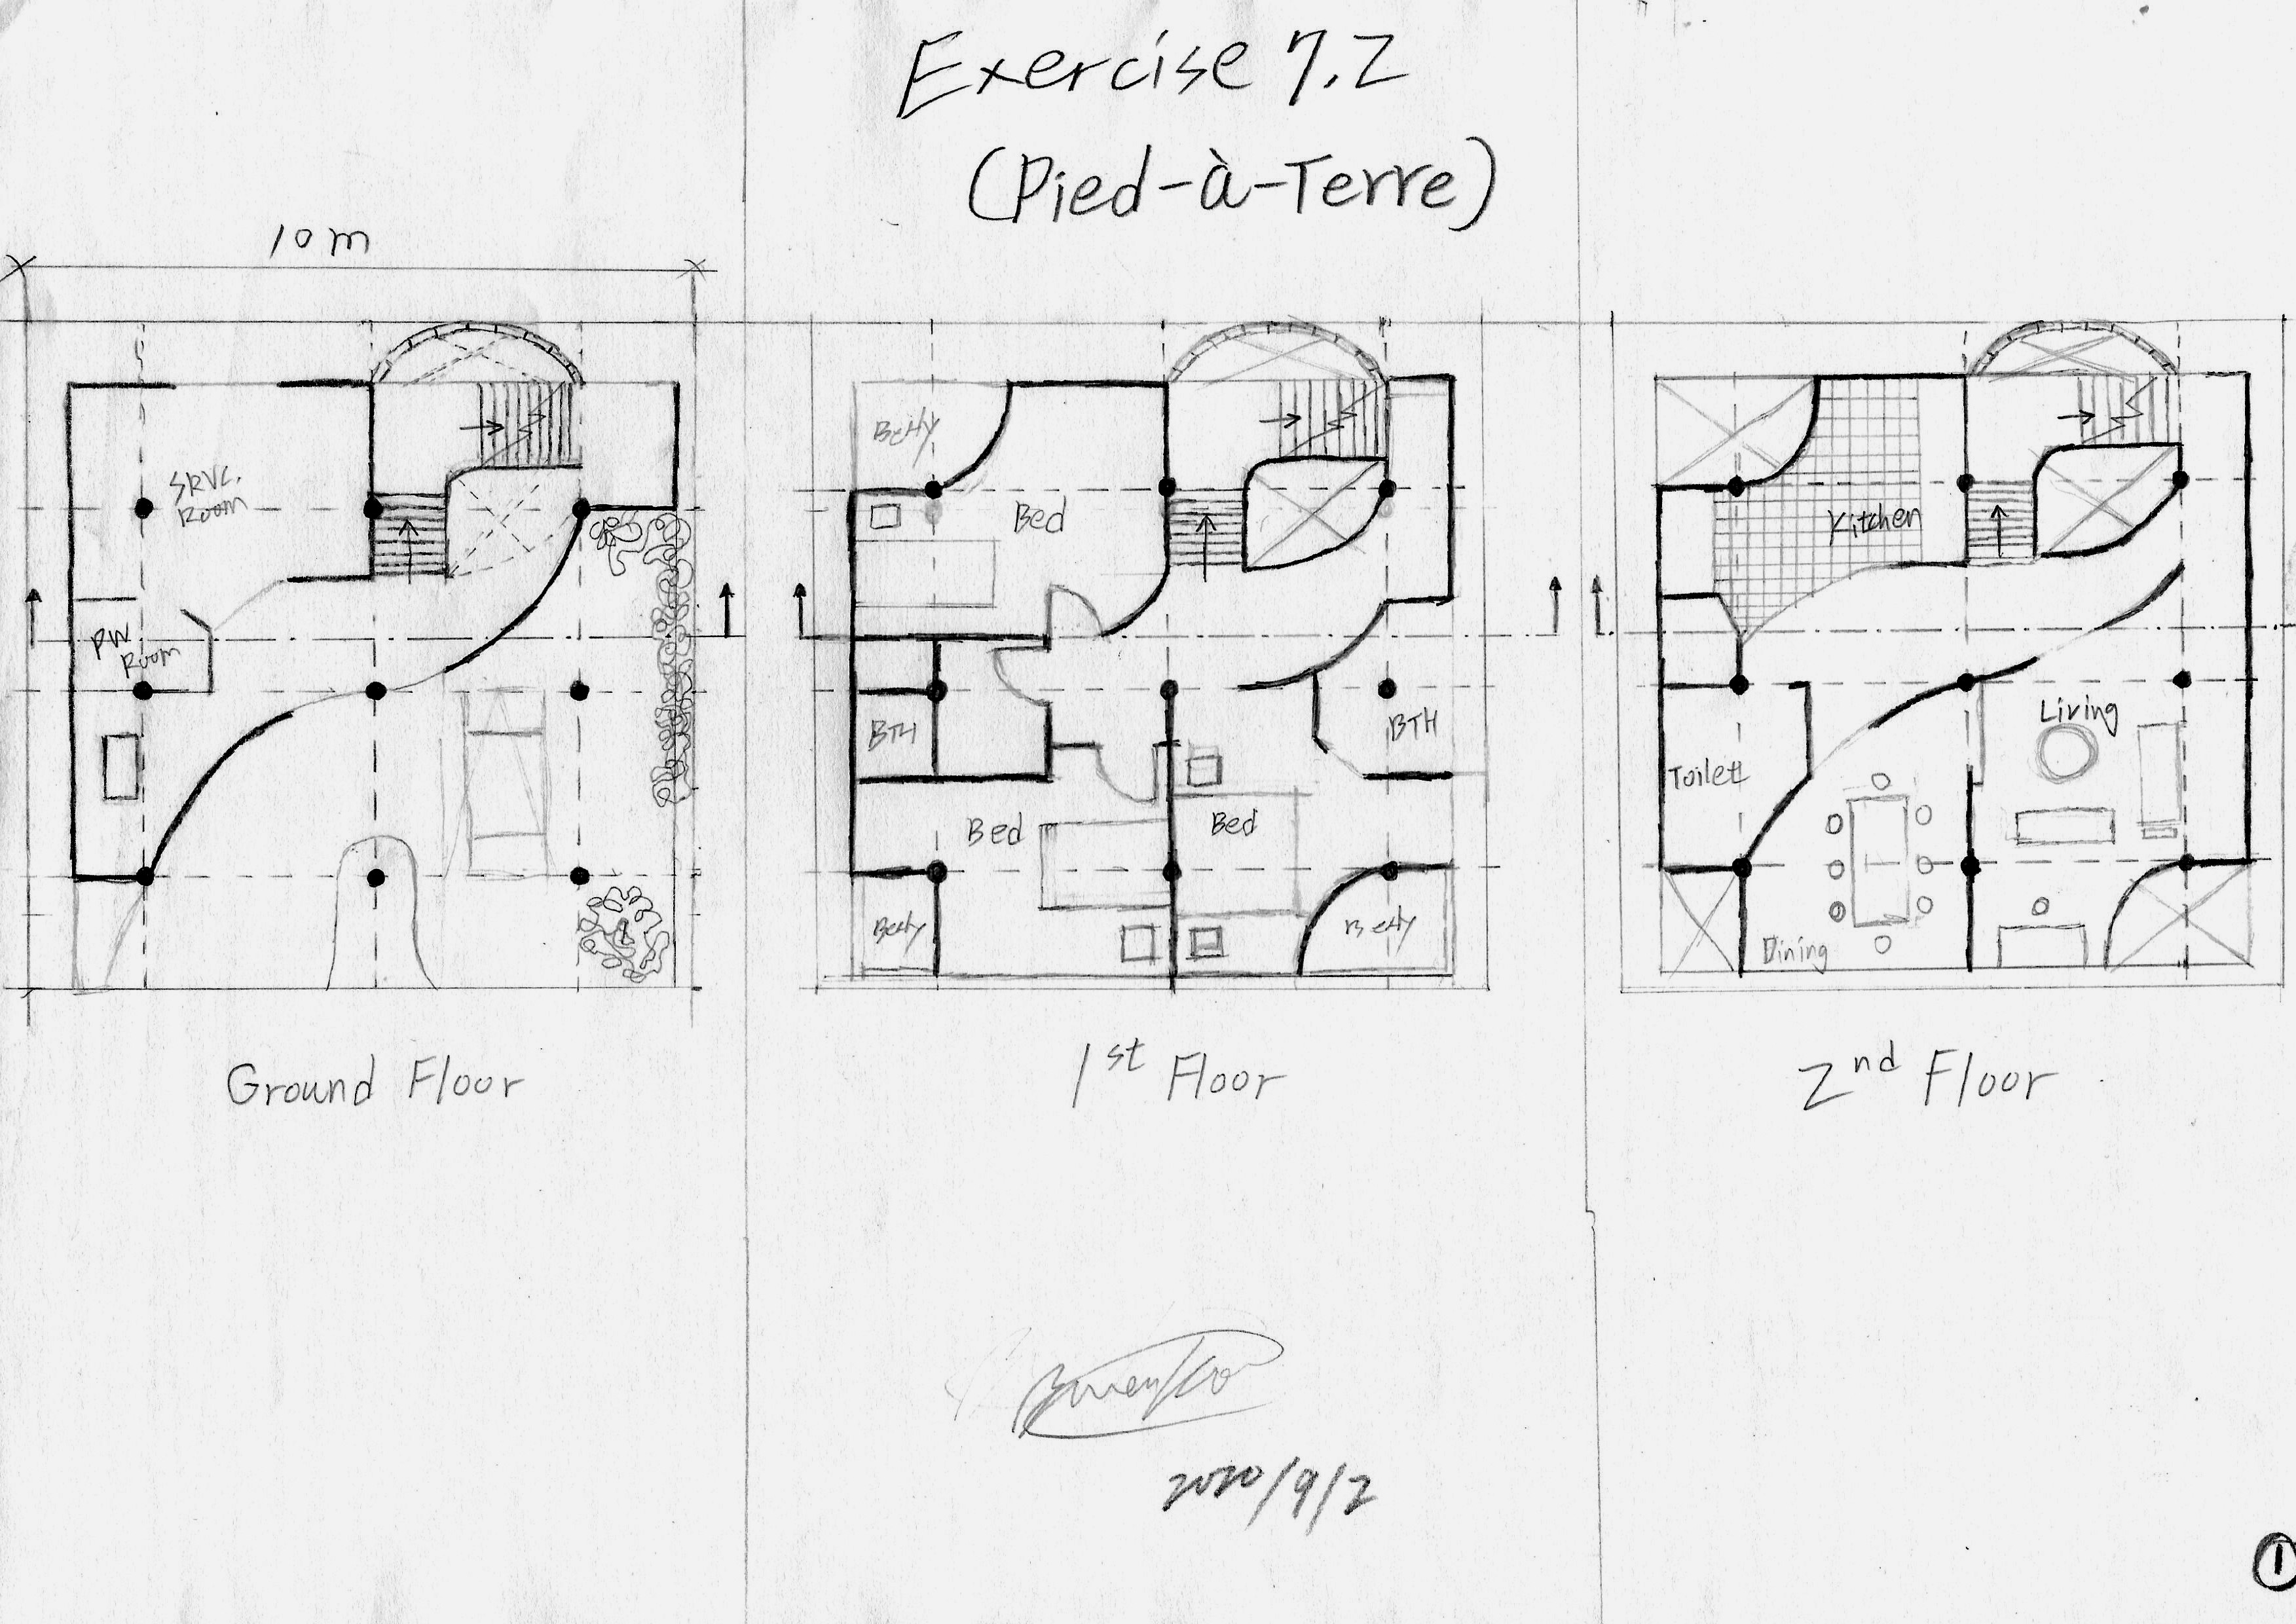 Exercise 7.2
(Pied-à-Terre)
10 m
SRVC.
Room
PW
Room
Ground Floor
Bed
BTH
BTH
Bed
Bed
1st Floor
Kitchen
Living
Toilet
Dining
2nd Floor
2020/9/2
1